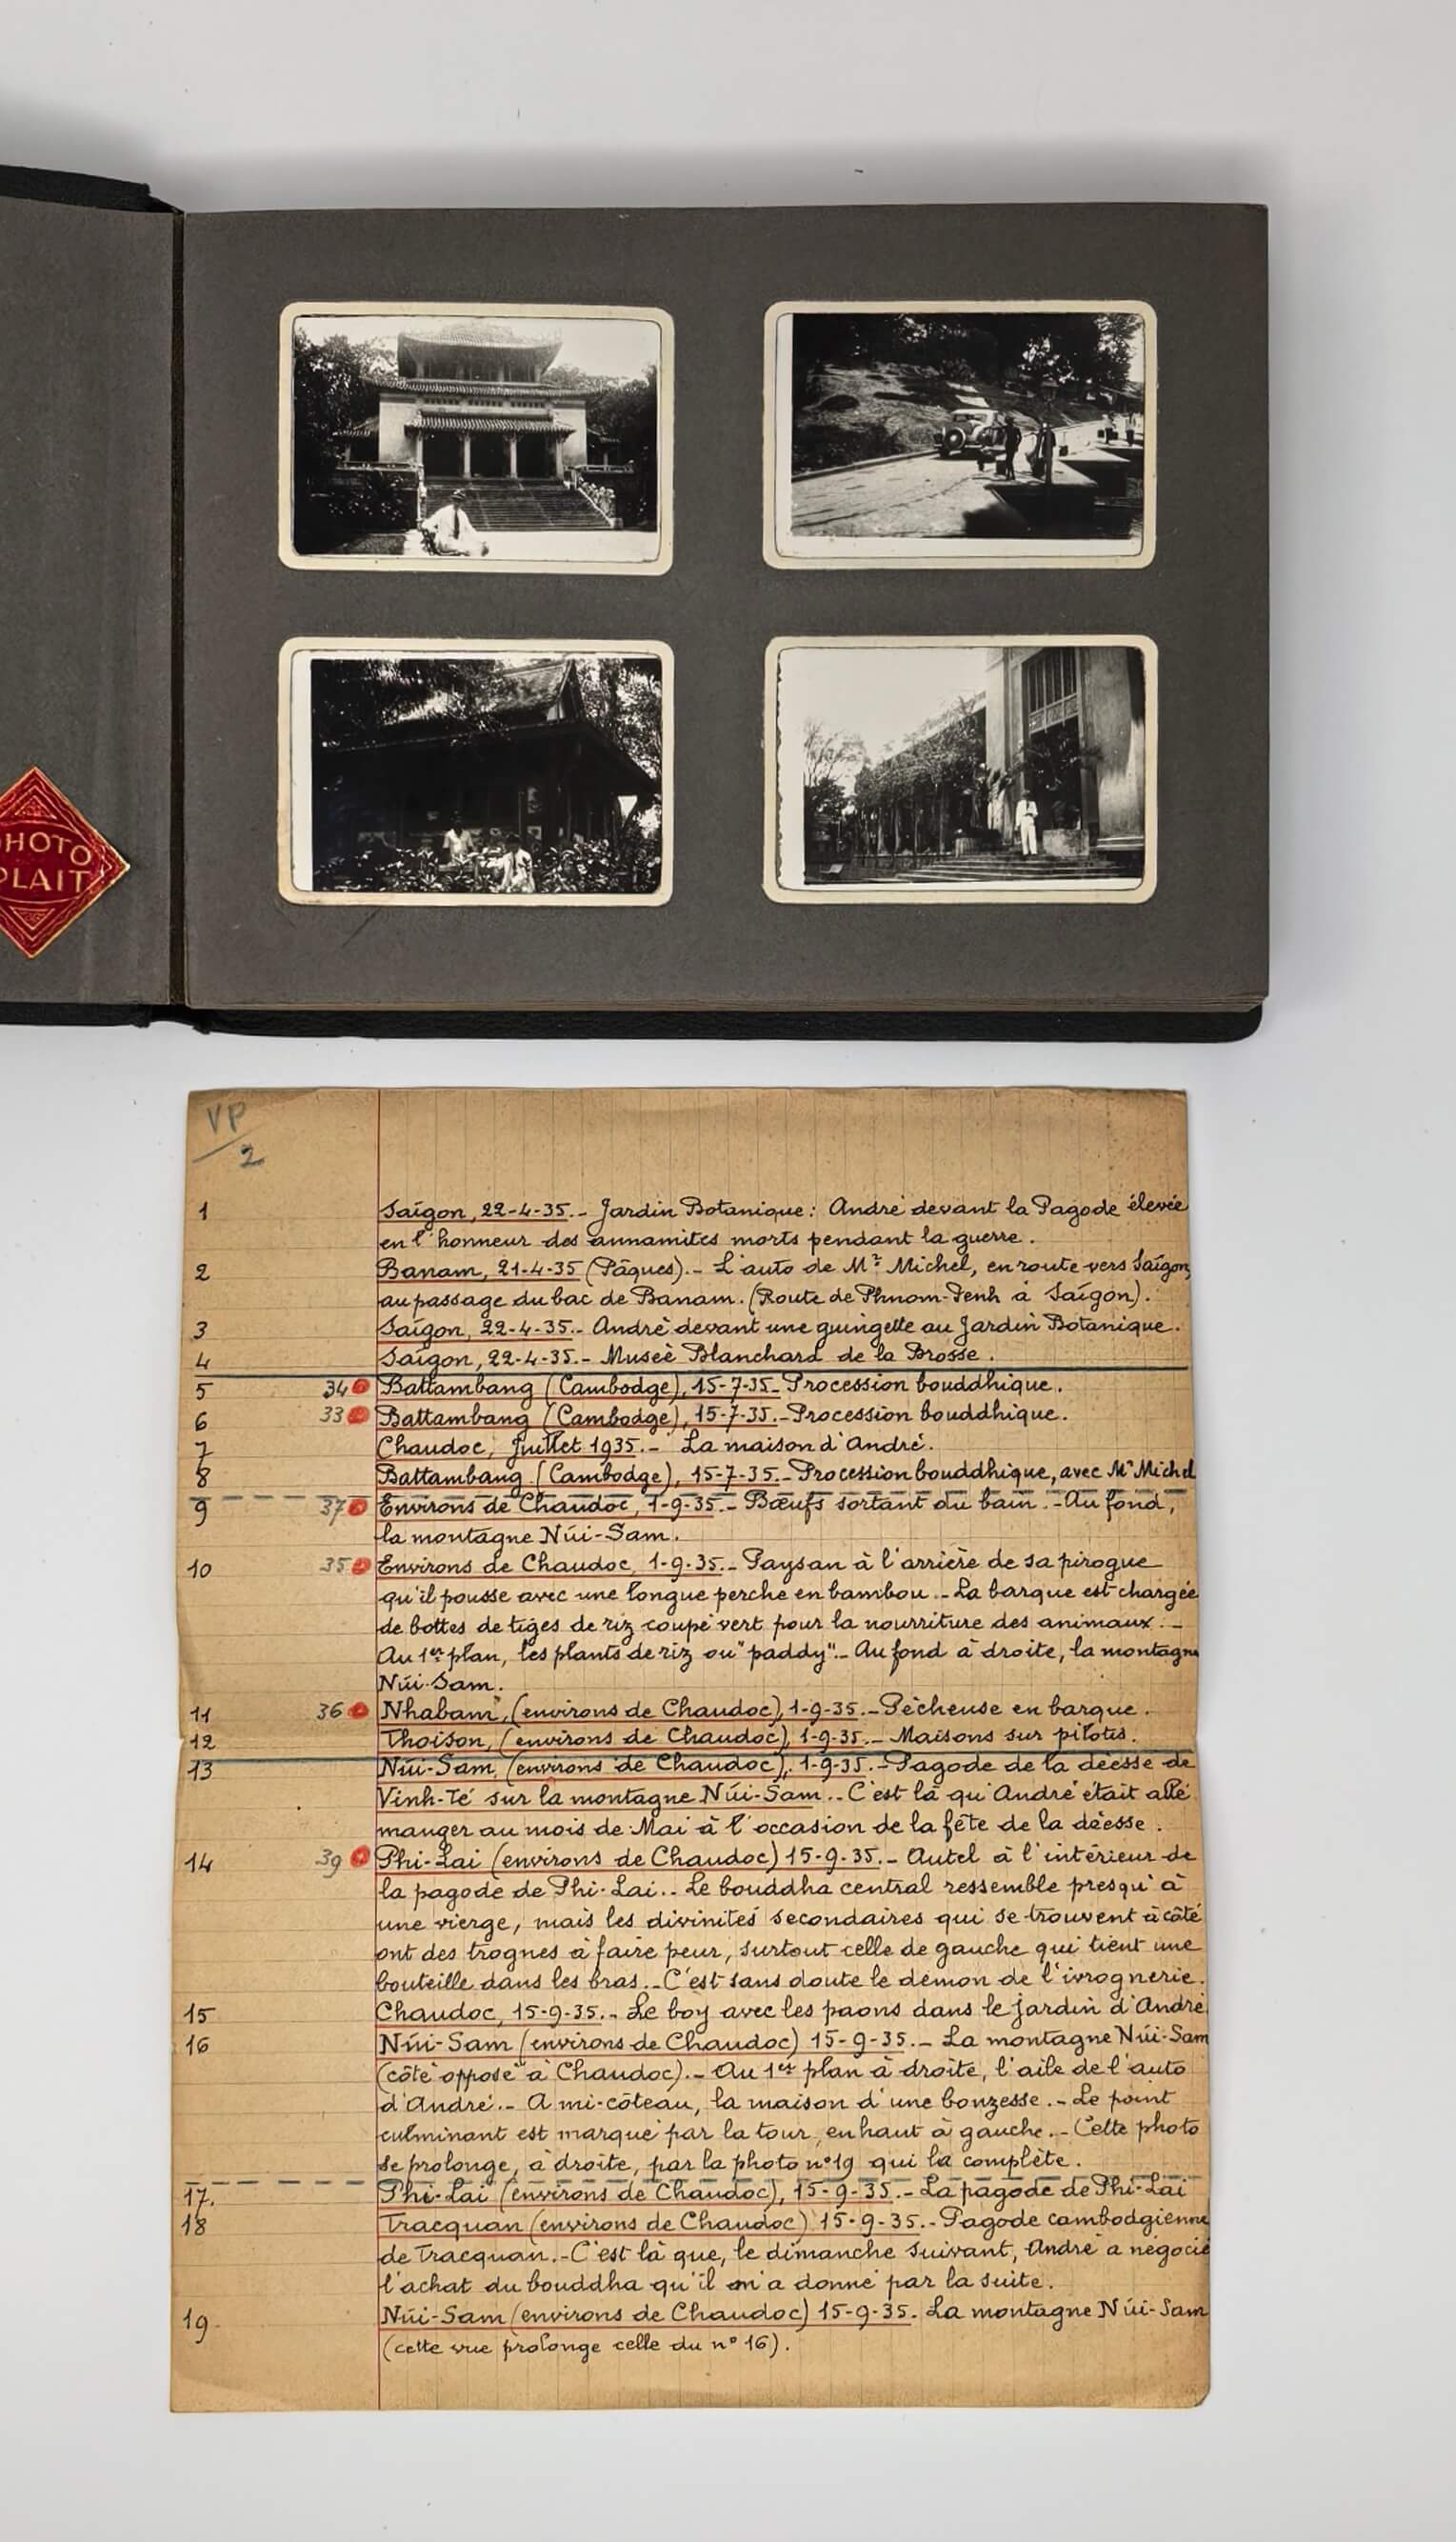 PHOTO
PLAIT
VP
2
1 Saïgon, 22-4-35.- Jardin Botanique : André devant la Pagode élevée
en l'honneur des annamites morts pendant la guerre.
2 Banam, 21-4-35 (Pâques).- L'auto de Mr Michel, en route vers Saïgon,
au passage du bac de Banam. (Route de Phnom-Penh à Saïgon).
3 Saïgon, 22-4-35.- André devant une guingette au Jardin Botanique.
4 Saïgon, 22-4-35.- Museè Blanchard de la Brosse.
5 34 Battambang (Cambodge), 15-7-35- Procession bouddhique.
6 33 Battambang (Cambodge), 15-7-35.-Procession bouddhique.
7 Chaudoc, Juillet 1935.- La maison d'André.
8 Battambang (Cambodge), 15-7-35.- Procession bouddhique, avec Mr Michel
9 37 Environs de Chaudoc, 1-9-35.- Bœufs sortant du bain.-Au fond,
la montagne Núi-Sam.
10 35 Environs de Chaudoc, 1-9-35.- Paysan à l'arrière de sa pirogue
qu'il pousse avec une longue perche en bambou.- La barque est chargée
de bottes de tiges de riz coupé vert pour la nourriture des animaux.-
Au 1er plan, les plants de riz ou "paddy".- Au fond à droite, la montagne
Núi-Sam.
11 36 Nhabam, (environs de Chaudoc), 1-9-35.-Pêcheuse en barque.
12 Thoison, (environs de Chaudoc), 1-9-35.- Maisons sur pilotis.
13 Núi-Sam, (environs de Chaudoc), 1-9-35.-Pagode de la déesse de
Vinh-Té sur la montagne Núi-Sam..-C'est là qu'André était allé
manger au mois de Mai à l'occasion de la fête de la déesse.
14 39 Phi-Lai (environs de Chaudoc) 15-9-35.- Autel à l'intérieur de
la pagode de Phi-Lai..- Le bouddha central ressemble presqu'à
une vierge, mais les divinités secondaires qui se trouvent à côté
ont des trognes à faire peur, surtout celle de gauche qui tient une
bouteille dans les bras.-C'est sans doute le démon de l'ivrognerie.
15 Chaudoc, 15-9-35.- Le boy avec les paons dans le jardin d'André
16 Núi-Sam (environs de Chaudoc) 15-9-35.- La montagne Núi-Sam
(côté opposé à Chaudoc).- Au 1er plan à droite, l'aile de l'auto
d'André.- A mi-côteau, la maison d'une bonzesse.- Le point
culminant est marqué par la tour, en haut à gauche.- Cette photo
se prolonge, à droite, par la photo n°19 qui la complète.
17. Phi-Lai (environs de Chaudoc), 15-9-35.- La pagode de Phi-Lai
18 Tracquan (environs de Chaudoc) 15-9-35.- Pagode cambodgienne
de Tracquan.-C'est là que, le dimanche suivant, André a négocié
l'achat du bouddha qu'il m'a donné par la suite.
19 Núi-Sam (environs de Chaudoc) 15-9-35. La montagne Núi-Sam
(cette vue prolonge celle du n° 16).